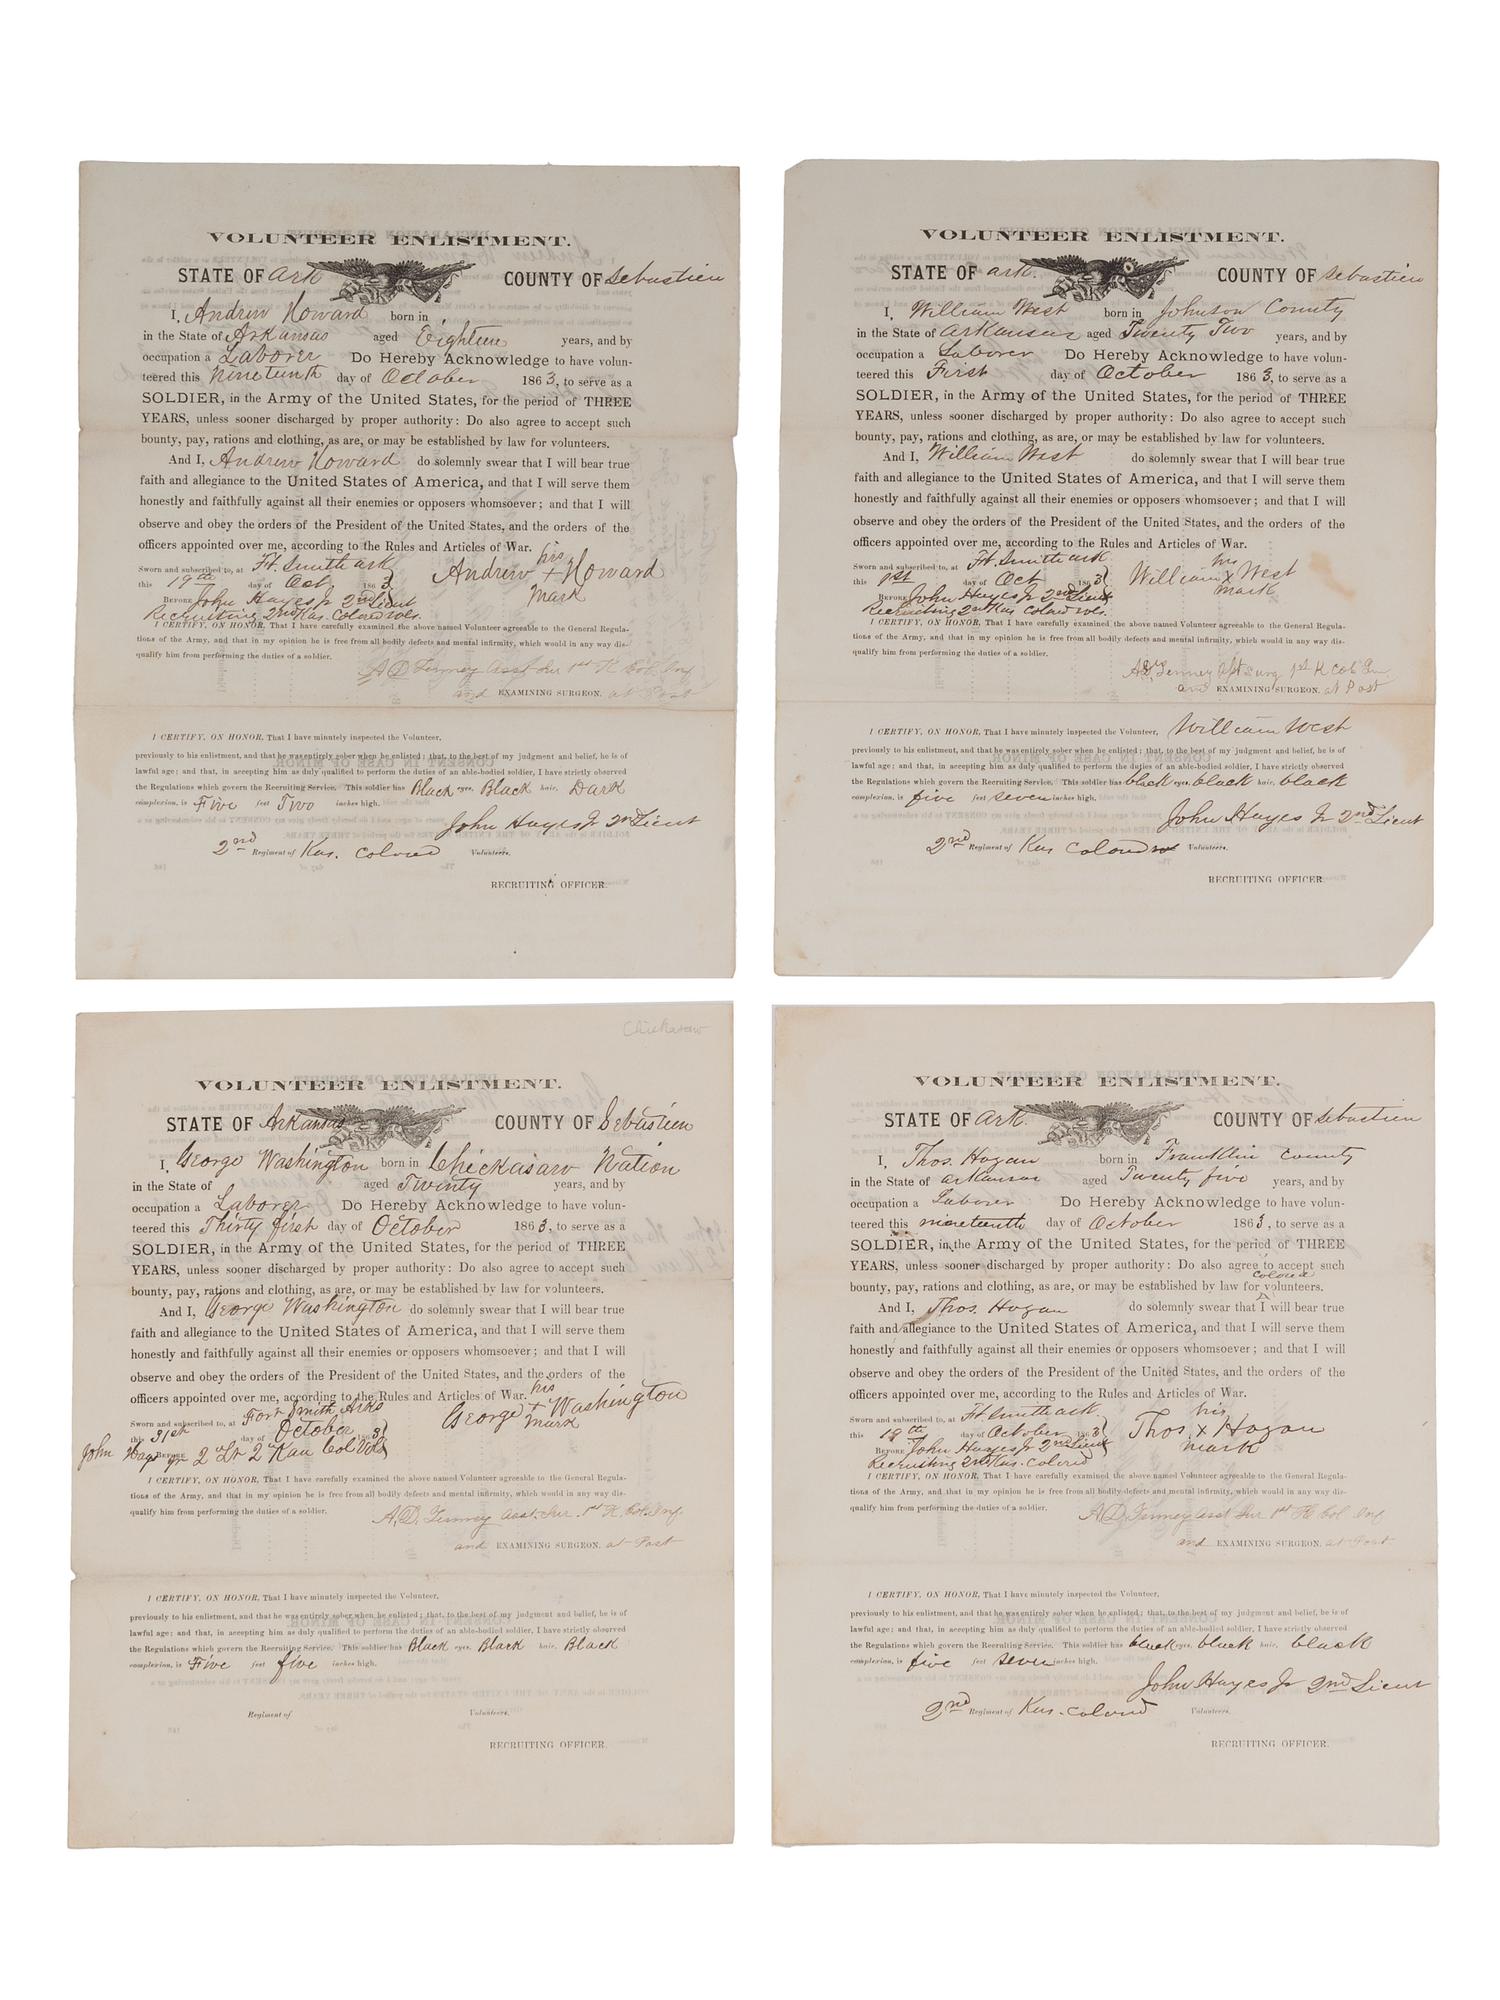 VOLUNTEER ENLISTMENT.
STATE OF Ark COUNTY OF Sebastien
I, Andrew Howard born in
in the State of Arkansas aged Eighteen years, and by
occupation a Laborer Do Hereby Acknowledge to have volun-
teered this Nineteenth day of October 1863, to serve as a
SOLDIER, in the Army of the United States, for the period of THREE
YEARS, unless sooner discharged by proper authority: Do also agree to accept such
bounty, pay, rations and clothing, as are, or may be established by law for volunteers.
And I, Andrew Howard do solemnly swear that I will bear true
faith and allegiance to the United States of America, and that I will serve them
honestly and faithfully against all their enemies or opposers whomsoever; and that I will
observe and obey the orders of the President of the United States, and the orders of the
officers appointed over me, according to the Rules and Articles of War.
Sworn and subscribed to, at Ft. Smith ark
this 19th day of Oct. 1863
Andrew his + mark Howard
Before John Hayes Jr 2nd Lieut
Recruiting 2nd Kas. Colored vols.
I CERTIFY, ON HONOR, That I have carefully examined the above named Volunteer agreeable to the General Regula-
tions of the Army, and that in my opinion he is free from all bodily defects and mental infirmity, which would in any way dis-
qualify him from performing the duties of a soldier.
A D Tenney asst Sur 1st K Col Inf
and EXAMINING SURGEON. at Post
I CERTIFY, ON HONOR, That I have minutely inspected the Volunteer,
previously to his enlistment, and that he was entirely sober when he enlisted; that, to the best of my judgment and belief, he is of
lawful age; and that, in accepting him as duly qualified to perform the duties of an able-bodied soldier, I have strictly observed
the Regulations which govern the Recruiting Service. This soldier has Black eyes, Black hair, Dark
complexion, is Five feet Two inches high.
John Hayes Jr 2n Lieut
2nd Regiment of Kas. Colored Volunteers.
RECRUITING OFFICER.
VOLUNTEER ENLISTMENT.
STATE OF ark. COUNTY OF Sebastien
I, William West born in Johnson County
in the State of Arkansas aged Twenty Two years, and by
occupation a Laborer Do Hereby Acknowledge to have volun-
teered this First day of October 1863, to serve as a
SOLDIER, in the Army of the United States, for the period of THREE
YEARS, unless sooner discharged by proper authority: Do also agree to accept such
bounty, pay, rations and clothing, as are, or may be established by law for volunteers.
And I, William West do solemnly swear that I will bear true
faith and allegiance to the United States of America, and that I will serve them
honestly and faithfully against all their enemies or opposers whomsoever; and that I will
observe and obey the orders of the President of the United States, and the orders of the
officers appointed over me, according to the Rules and Articles of War.
Sworn and subscribed to, at Ft. Smith ark
this 1st day of Oct 1863
William his x mark West
Before John Hayes Jr 2nd Lieut
Recruiting 2nd Kas Colored vols.
I CERTIFY, ON HONOR, That I have carefully examined the above named Volunteer agreeable to the General Regula-
tions of the Army, and that in my opinion he is free from all bodily defects and mental infirmity, which would in any way dis-
qualify him from performing the duties of a soldier.
A D Tenney Surg 1st K Col In
and EXAMINING SURGEON. at Post
I CERTIFY, ON HONOR, That I have minutely inspected the Volunteer, William West
previously to his enlistment, and that he was entirely sober when he enlisted; that, to the best of my judgment and belief, he is of
lawful age; and that, in accepting him as duly qualified to perform the duties of an able-bodied soldier, I have strictly observed
the Regulations which govern the Recruiting Service. This soldier has black eyes, black hair, black
complexion, is five feet seven inches high.
John Hayes Jr 2nd Lieut
2nd Regiment of Kas Colored Volunteers.
RECRUITING OFFICER.
Chickasaw
VOLUNTEER ENLISTMENT.
STATE OF Arkansas COUNTY OF Sebastien
I, George Washington born in Chickasaw Nation
in the State of aged Twenty years, and by
occupation a Laborer Do Hereby Acknowledge to have volun-
teered this Thirty first day of October 1863, to serve as a
SOLDIER, in the Army of the United States, for the period of THREE
YEARS, unless sooner discharged by proper authority: Do also agree to accept such
bounty, pay, rations and clothing, as are, or may be established by law for volunteers.
And I, George Washington do solemnly swear that I will bear true
faith and allegiance to the United States of America, and that I will serve them
honestly and faithfully against all their enemies or opposers whomsoever; and that I will
observe and obey the orders of the President of the United States, and the orders of the
officers appointed over me, according to the Rules and Articles of War.
Sworn and subscribed to, at Fort Smith Arks
this 31st day of October 1863
George his + mark Washington
John Hays Jr Before 2 Lt 2 Kan Col Vols
I CERTIFY, ON HONOR, That I have carefully examined the above named Volunteer agreeable to the General Regula-
tions of the Army, and that in my opinion he is free from all bodily defects and mental infirmity, which would in any way dis-
qualify him from performing the duties of a soldier.
A. D. Tenney asst. Sur. 1st K. Col. Inf.
and EXAMINING SURGEON. at Post
I CERTIFY, ON HONOR, That I have minutely inspected the Volunteer,
previously to his enlistment, and that he was entirely sober when he enlisted; that, to the best of my judgment and belief, he is of
lawful age; and that, in accepting him as duly qualified to perform the duties of an able-bodied soldier, I have strictly observed
the Regulations which govern the Recruiting Service. This soldier has Black eyes, Black hair, Black
complexion, is Five feet five inches high.
Regiment of Volunteers.
RECRUITING OFFICER.
VOLUNTEER ENLISTMENT.
STATE OF Ark. COUNTY OF Sebastien
I, Thos. Hogan born in Franklin County
in the State of Arkansas aged Twenty five years, and by
occupation a Laborer Do Hereby Acknowledge to have volun-
teered this nineteenth day of October 1863, to serve as a
SOLDIER, in the Army of the United States, for the period of THREE
YEARS, unless sooner discharged by proper authority: Do also agree to accept such
bounty, pay, rations and clothing, as are, or may be established by law for colored volunteers.
And I, Thos. Hogan do solemnly swear that I will bear true
faith and allegiance to the United States of America, and that I will serve them
honestly and faithfully against all their enemies or opposers whomsoever; and that I will
observe and obey the orders of the President of the United States, and the orders of the
officers appointed over me, according to the Rules and Articles of War.
Sworn and subscribed to, at Ft. Smith ark.
this 19th day of October 1863
Thos. his x mark Hogan
Before John Hayes Jr 2nd Lieut
Recruiting 2nd Kas. Colored
I CERTIFY, ON HONOR, That I have carefully examined the above named Volunteer agreeable to the General Regula-
tions of the Army, and that in my opinion he is free from all bodily defects and mental infirmity, which would in any way dis-
qualify him from performing the duties of a soldier.
A D Tenney asst Sur 1st K Col Inf
and EXAMINING SURGEON. at Post
I CERTIFY, ON HONOR, That I have minutely inspected the Volunteer,
previously to his enlistment, and that he was entirely sober when he enlisted; that, to the best of my judgment and belief, he is of
lawful age; and that, in accepting him as duly qualified to perform the duties of an able-bodied soldier, I have strictly observed
the Regulations which govern the Recruiting Service. This soldier has black eyes, black hair, black
complexion, is five feet seven inches high.
John Hayes Jr 2nd Lieut
2nd Regiment of Kas. Colored Volunteers.
RECRUITING OFFICER.